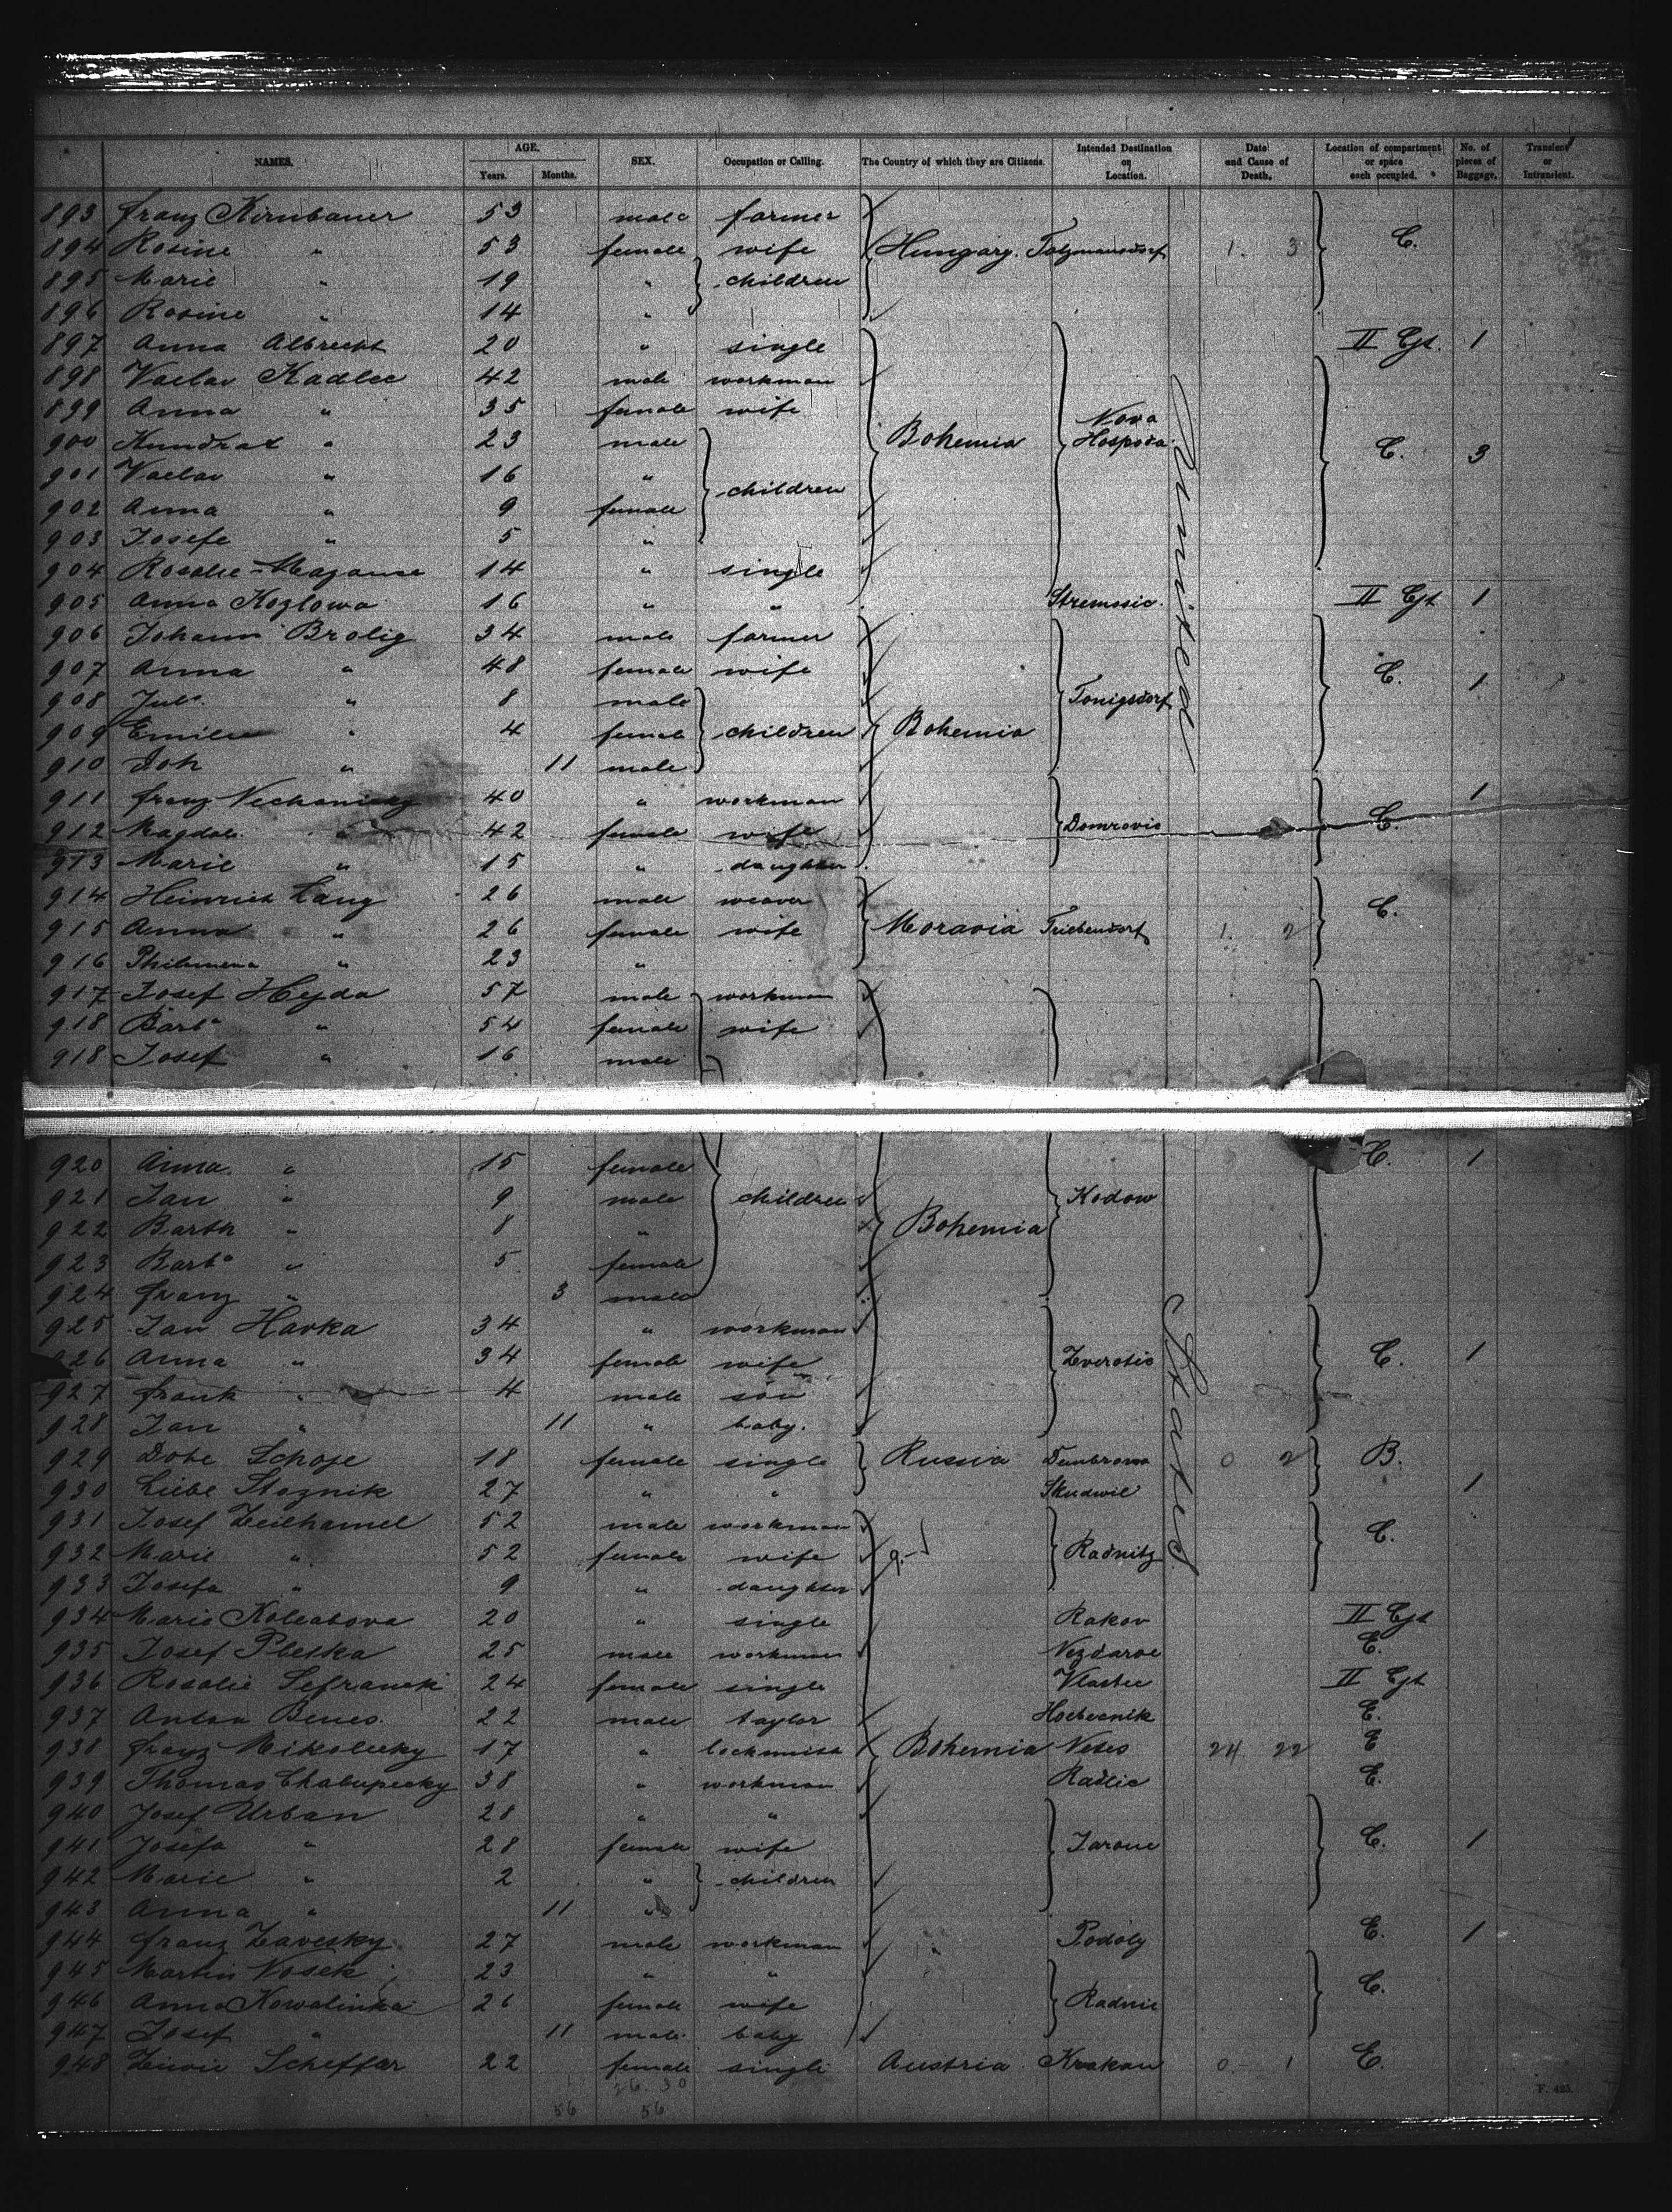 NAMES. AGE. Years. Months. SEX. Occupation or Calling. The Country of which they are Citizens. Intended Destination or Location. Date and Cause of Death. Location of compartment or space each occupied. No. of pieces of Baggage. Transient or Intransient.
893 Franz Kirnbauer 53 male farmer
894 Rosine " 53 female wife Hungary. Tatzmansdorf 1. 3 C.
895 Marie " 19 " children
896 Rosine " 14 "
897 Anna Albrecht 20 " single II Cjt. 1
898 Vaclav Kadlec 42 male workman
899 Anna " 35 female wife
900 Kundrat " 23 male Bohemia Nova Hospoda C. 3
901 Vaclav " 16 "
902 Anna " 9 female children
903 Josefe " 5 "
904 Rosalie 14 " single
905 Anna Kozlowa 16 " " Stremosic. II Cjt 1
906 Johann Brolig 34 male farmer
907 Anna " 48 female wife C. 1
908 Jul. " 8 male Tonigsdorf
909 Emilie " 4 female children Bohemia
910 Joh " 11 male
911 Franz 40 " workman 1
912 Magdale. " 42 female wife Domrovic C.
913 Marie " 15 " daughter
914 Heinrich Lang 26 male weaver C.
915 Anna " 26 female wife Moravia Triebendorf 1. 2
916 Philomena " 23 "
917 Josef Hejda 57 male workman
918 Barba " 54 female wife
918 Josef " 16 male
920 Anna " 15 female C. 1
921 Jan " 9 male children Kodow
922 Barth " 8 " Bohemia
923 Barba " 5 female
924 Franz " 3 male
925 Jan Havka 34 " workman
926 Anna " 34 female wife Zverotic C. 1
927 Frank " 4 male son
928 Jan " 11 " baby.
929 Dobe Schoje 18 female single Russia Dembrowa 0 2 B.
930 Liebe Stoznik 27 " " Skudwil 1
931 Josef Zeilhamel 52 male workman C.
932 Marie " 52 female wife Radnitz
933 Josefa " 9 " daughter
934 Marie 20 " single Rakov II Cjt
935 Josef Pletka 25 male workman C.
936 Rosalie Sefranek 24 female single Vlastec II Cjt
937 Anton Benes. 22 male taylor E.
938 Franz Mikolecky 17 " Bohemia Veses 24. 22 E
939 Thomas Chalupecky 38 " workman Radlic E.
940 Josef Urban 28 " "
941 Josefa " 28 female wife Jarone C. 1
942 Marie " 2 " children
943 Anna " 11 "
944 Franz Zavesky. 27 male workman Podoly E. 1
945 Martin Vosek 23 " " C.
946 Anna Kowalinka 26 female wife Radnic
947 Josef " 11 male baby
948 Scheffar 22 female single Austria Krakau 0 1 E.
United
States
26. 30
56 56
F. 425.